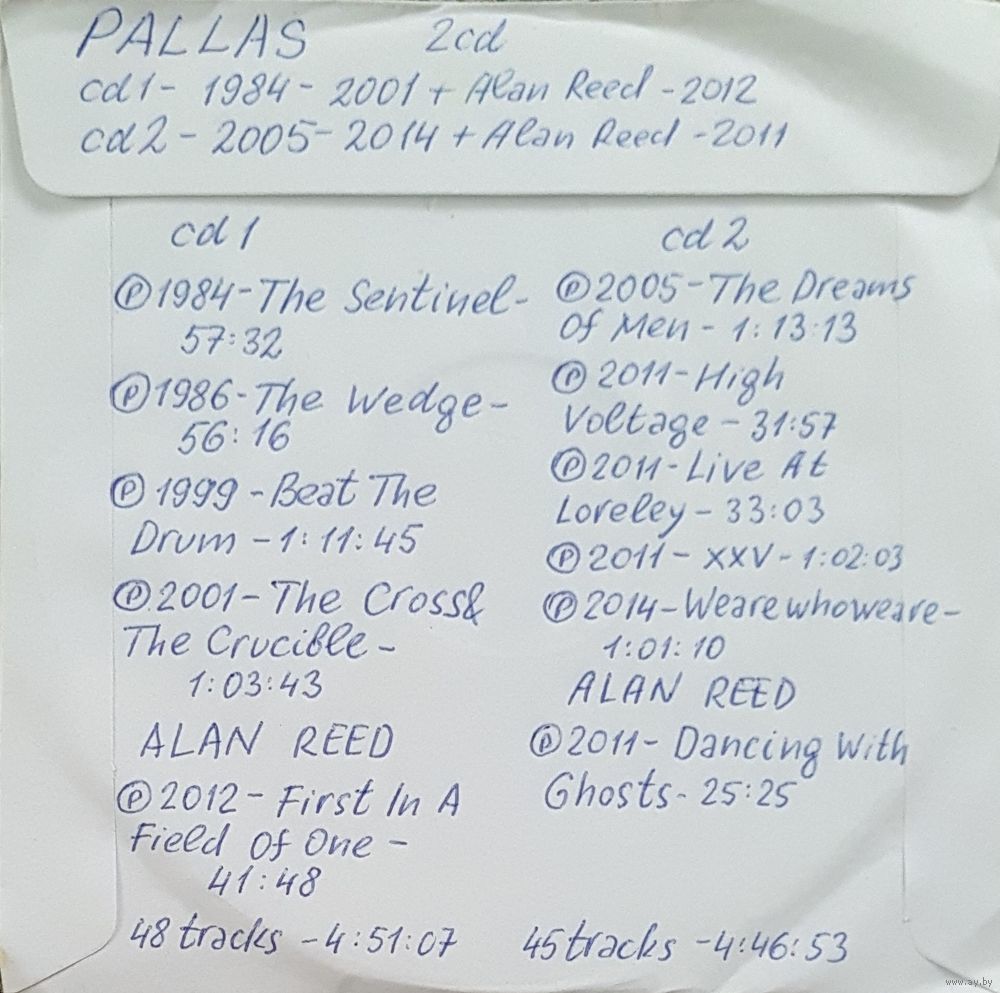 PALLAS 2cd
cd1- 1984- 2001 + Alan Reed -2012
cd2 - 2005- 2014 + Alan Reed -2011
cd 1
Ⓟ1984-The Sentinel-
57:32
Ⓟ1986-The Wedge-
56:16
Ⓟ 1999 -Beat The
Drum -1:11:45
Ⓟ2001-The Cross&
The Crucible -
1:03:43
ALAN REED
Ⓟ2012- First In A
Field Of One -
41:48
48 tracks -4:51:07
cd 2
Ⓟ2005-The Dreams
Of Men - 1:13:13
Ⓟ 2011-High
Voltage - 31:57
Ⓟ2011-Live At
Loreley - 33:03
Ⓟ2011- XXV - 1:02:03
Ⓟ2014-Wearewhoweare-
1:01:10
ALAN REED
Ⓟ2011- Dancing With
Ghosts- 25:25
45tracks -4:46:53
www.ay.by